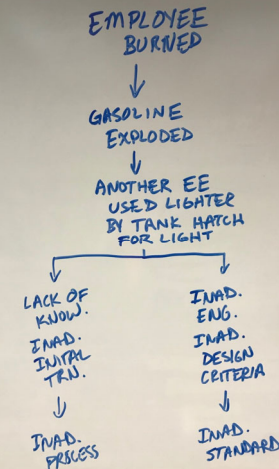 EMPLOYEE
BURNED
GASOLINE
EXPLODED
ANOTHER EE
USED LIGHTER
BY TANK HATCH
FOR LIGHT
LACK OF
KNOW.
INAD.
INITAL
TRN.
INAD.
PROCESS
INAD.
ENG.
INAD.
DESIGN
CRITERIA
INAD.
STANDARD